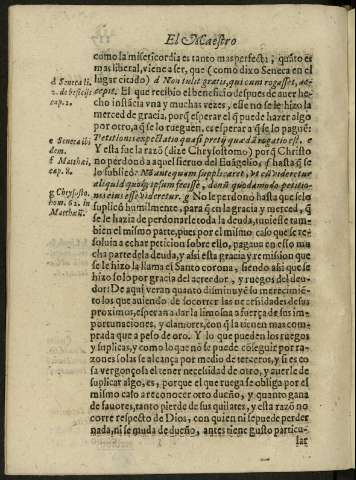 El Maestro
como la misericordia es tanto mas perfecta, quãto es
mas liberal, viene a ser, que (como dixo Seneca en el
d Seneca li.
2. de benefi.
cap. 1.
lugar citado) d Non tulit gratis, qui cum rogasset, ac-
cepit. El que recibio el beneficio despues de auer he-
cho instãcia vna y muchas vezes, esse no se le hizo la
merced de gracia, porq̃ esperar el q̃ puede hazer algo
por otro, a q̃ se lo rueguen, es esperar a q̃ se lo paguẽ:
e Seneca ibi
dem.
Petitionis expectatio quasi pretij quædã rogatio est. e
f Matthæi,
cap. 8.
Y esta fue la razõ (dize Chrysostomo) porq̃ Christo
no perdonò a aquel sieruo del Euãgelio, f hasta q̃ se
lo suplicò: Ne antequam supplicaret, vt ei videretur
g Chrysosto.
hom. 62. in
Matthæũ.
aliquid quoq; ipsum fecisse, donũ quodãmodo petitio-
nis eius esse videretur. g No le perdonò hasta que se lo
suplicò humilmente, para q̃ en la gracia y merced, q̃
se le hazia de perdonarle toda la deuda, tuuiesse tam-
bien el mismo parte, pues por el mismo caso que se re-
soluia a echar peticion sobre ello, pagaua en esso mu-
cha parte de la deuda, y assi esta gracia y remission que
se le hizo la llama el Santo corona, siendo assi que se
hizo solo por gracia del acreedor, y ruegos del deu-
dor: De aqui veran quanto disminuyẽ su merecimiẽ-
to los que auiendo de socorrer las necessidades de sus
proximos, esperan a dar la limosna a fuerça de sus im-
portunaciones, y clamores, con q̃ la tienen mas com-
prada que a peso de oro. Y lo que pueden los ruegos
y suplicas, y como lo que no se puede cõseguir por ra-
zones solas se alcança por medio de terceros, y si es co
sa vergonçosa el tener necessidad de otro, y auerle de
suplicar algo, es, porque el que ruega se obliga por el
mismo caso a reconocer otro dueño, y quanto gana
de fauores, tanto pierde de sus quilates, y esta razõ no
corre respecto de Dios, con quien ni se puede perder
nada, ni se muda de dueño, antes tiene gusto particu-
lar